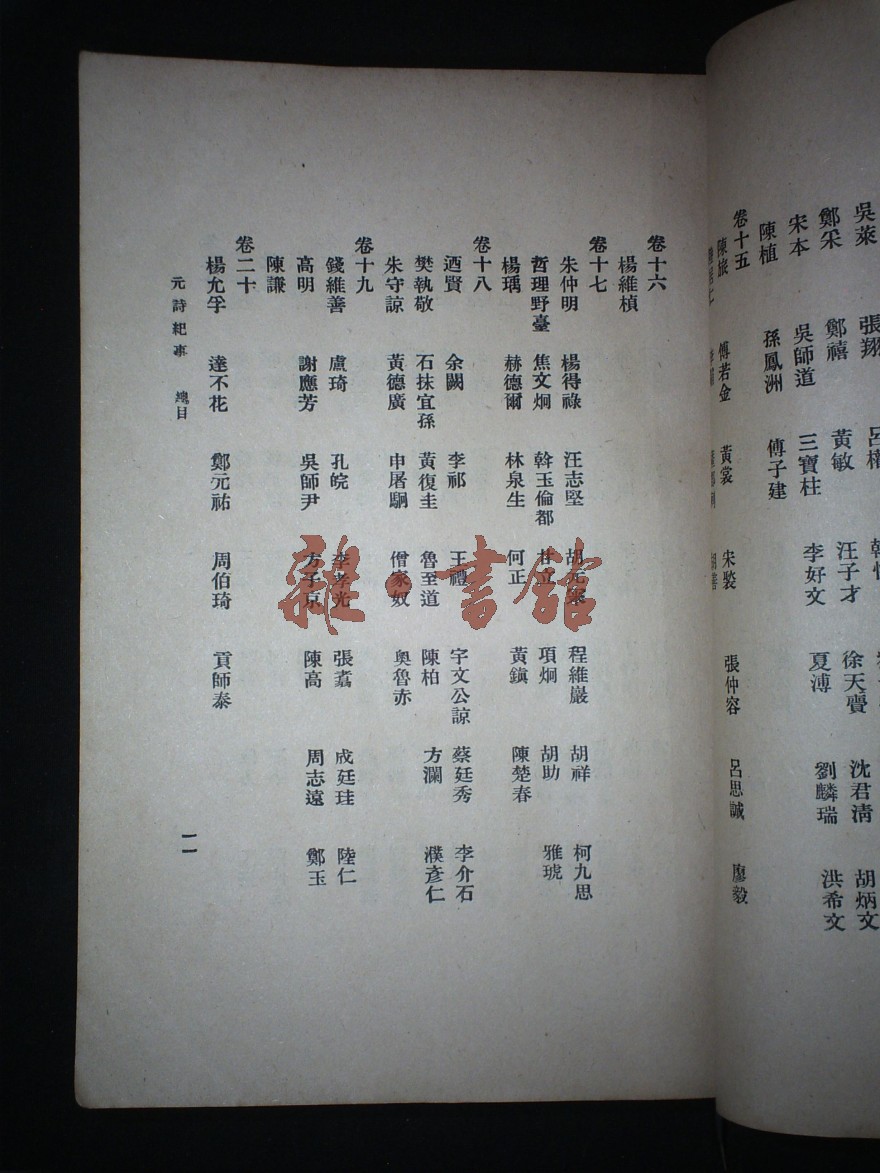 吳萊 張翔 呂權
鄭采 鄭禧 黃敏 汪子才 徐天賚 沈君淸 胡炳文
宋本 吳師道 三寶柱 李好文 夏溥 劉麟瑞 洪希文
陳植 孫鳳洲 傅子建
卷十五
陳旅 傅若金 黃裳 宋褧 張仲容 呂思誠 廖毅
卷十六
楊維楨
卷十七
朱仲明 楊得祿 汪志堅 程維巖 胡祥 柯九思
哲理野臺 焦文炯 斡玉倫都 甘立 項炯 胡助 雅琥
楊瑀 赫德爾 林泉生 何正 黃鎭 陳楚春
卷十八
迺賢 余闕 李祁 王禮 宇文公諒 蔡廷秀 李介石
樊執敬 石抹宜孫 黃復圭 魯至道 陳柏 方瀾 濮彥仁
朱守諒 黃德廣 申屠駉 僧家奴 奧魯赤
卷十九
錢維善 盧琦 孔皖 李孝光 張翥 成廷珪 陸仁
高明 謝應芳 吳師尹 方子京 陳高 周志遠 鄭玉
陳謙
卷二十
楊允孚 達不花 鄭元祐 周伯琦 貢師泰
元詩紀事 總目
一一
雜·書館